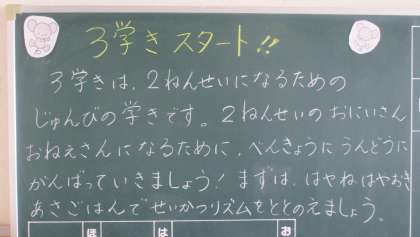 3学きスタート!!
3学きは、2ねんせいになるための
じゅんびの学きです。2ねんせいのおにいさん
おねえさんになるために、べんきょうにうんどうに
がんばっていきましょう! まずは、はやねはやおき
あさごはんでせいかつリズムをととのえましょう。
ほ は お